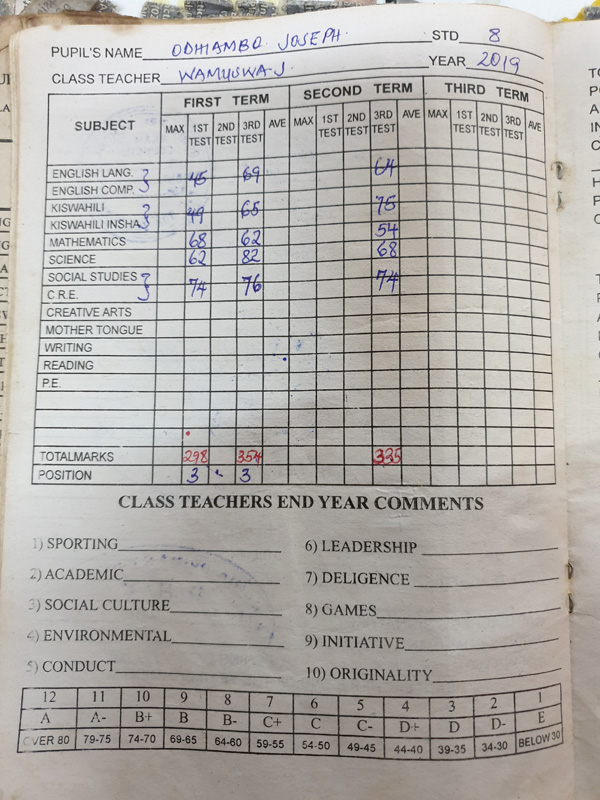 PUPIL'S NAME ODHIAMBO JOSEPH. STD 8
CLASS TEACHER WAMUSWA J. YEAR 2019
SUBJECT FIRST TERM SECOND TERM THIRD TERM
MAX 1ST TEST 2ND TEST 3RD TEST AVE MAX 1ST TEST 2ND TEST 3RD TEST AVE MAX 1ST TEST 2ND TEST 3RD TEST AVE
ENGLISH LANG. 45 69 64
ENGLISH COMP.
KISWAHILI 49 65 75
KISWAHILI INSHA
MATHEMATICS 68 62 54
SCIENCE 62 82 68
SOCIAL STUDIES 74 76 74
C.R.E.
CREATIVE ARTS
MOTHER TONGUE
WRITING
READING
P.E.
TOTALMARKS 298 354 335
POSITION 3 3
CLASS TEACHERS END YEAR COMMENTS
1) SPORTING 6) LEADERSHIP
2) ACADEMIC 7) DELIGENCE
3) SOCIAL CULTURE 8) GAMES
4) ENVIRONMENTAL 9) INITIATIVE
5) CONDUCT 10) ORIGINALITY
12 11 10 9 8 7 6 5 4 3 2 1
A A- B+ B B- C+ C C- D+ D D- E
OVER 80 79-75 74-70 69-65 64-60 59-55 54-50 49-45 44-40 39-35 34-30 BELOW 30